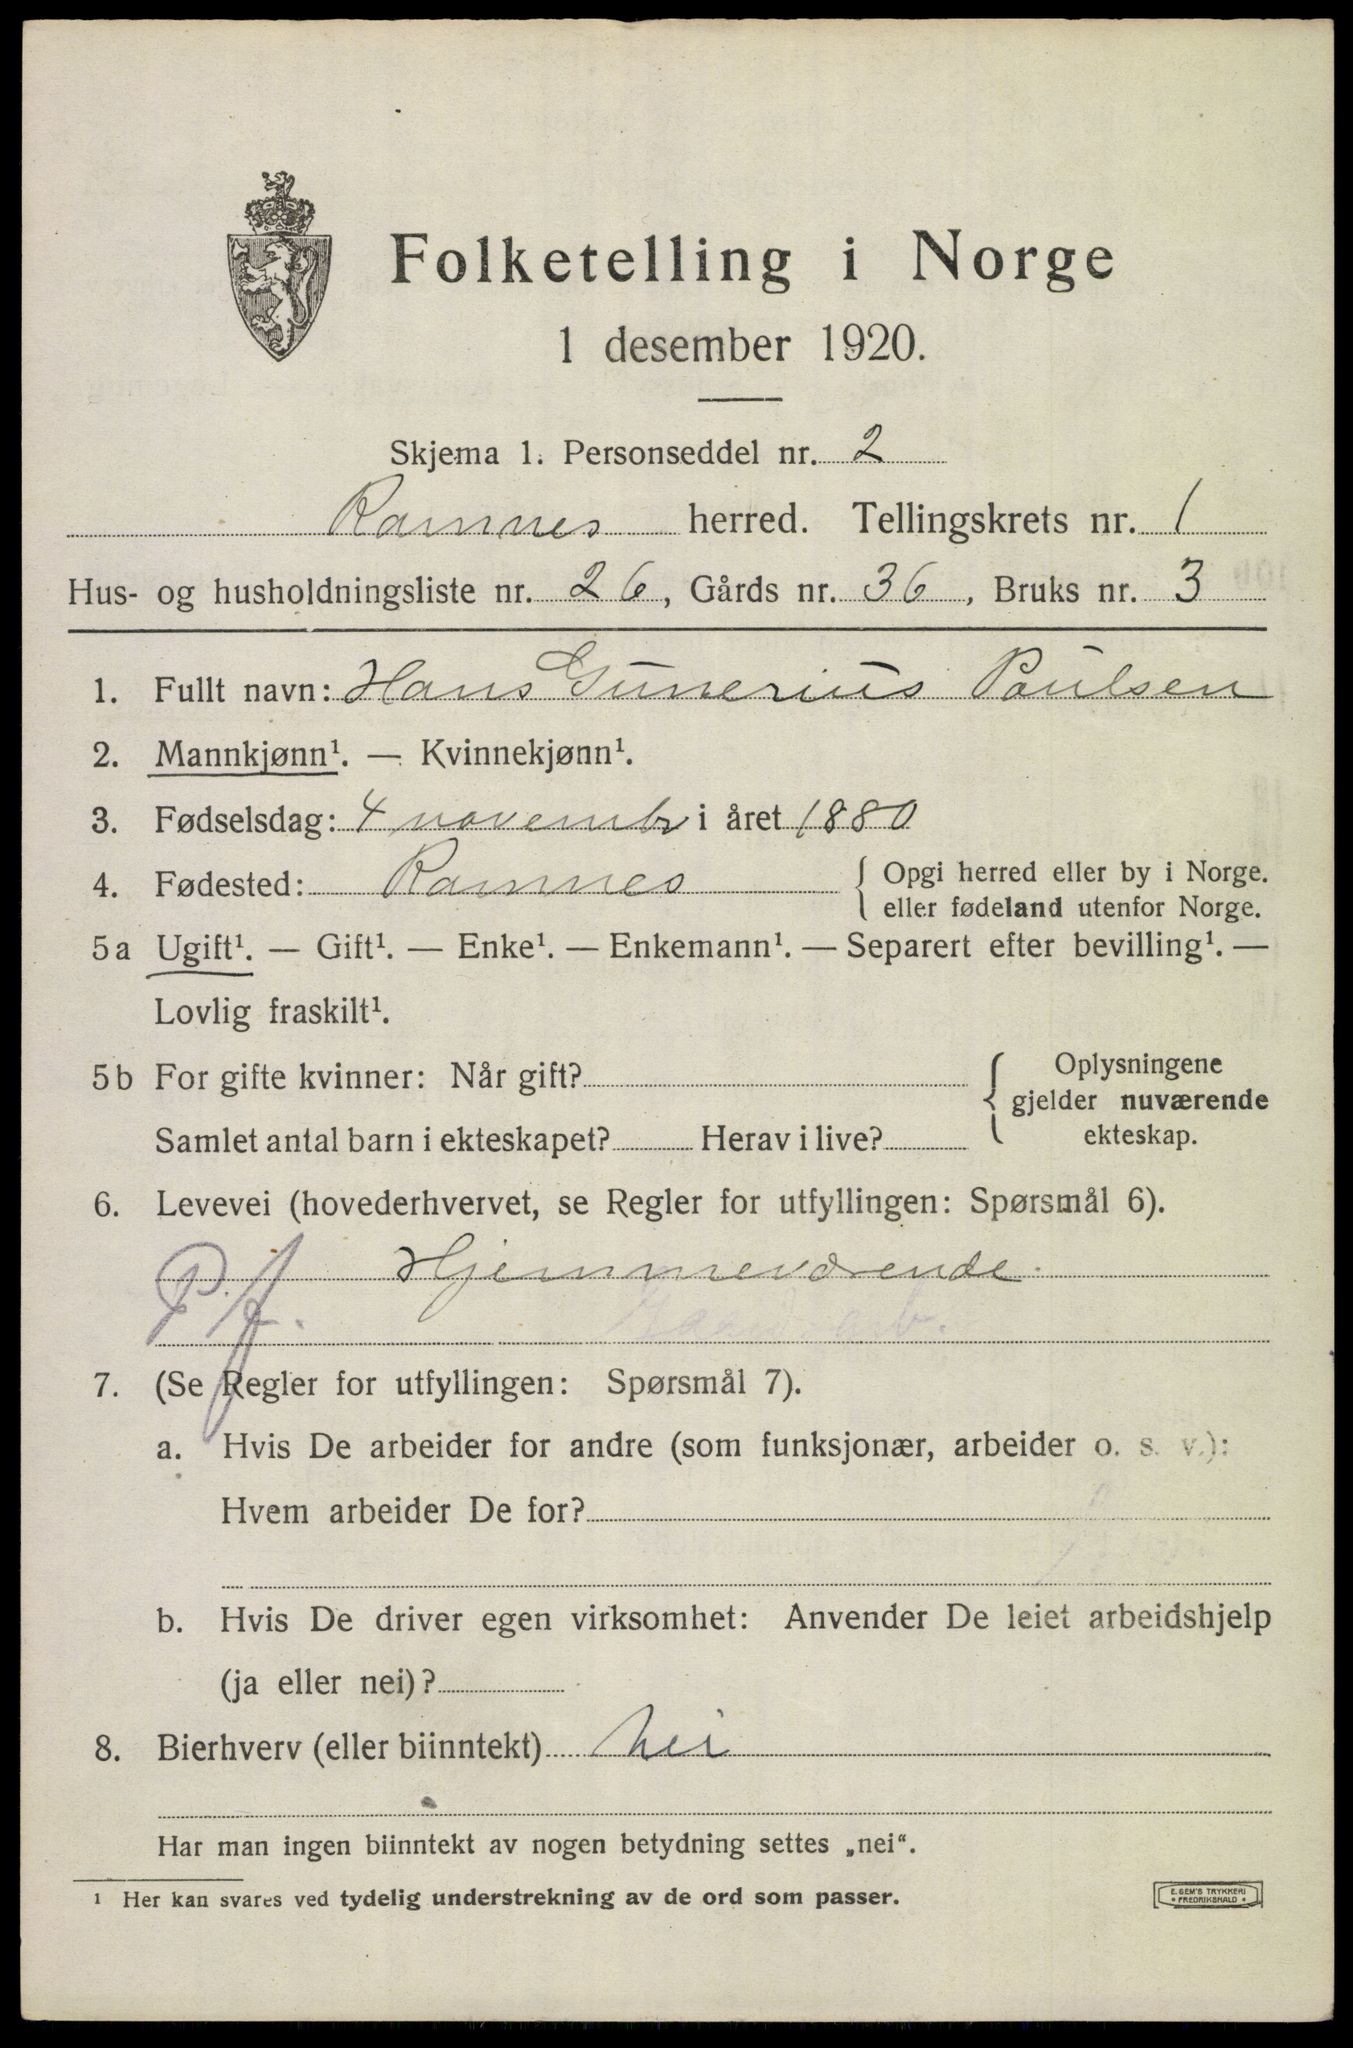 Folketelling i Norge
1 desember 1920.
Skjema 1. Personseddel nr. 2
Ramnes herred. Tellingskrets nr. 1
Hus- og husholdningsliste nr. 26, Gårds nr. 36, Bruks nr. 3
1. Fullt navn: Hans Gunerius Paulsen
2. Mannkjønn¹. — Kvinnekjønn¹.
3. Fødselsdag: 4 novembr i året 1880
4. Fødested: Ramnes { Opgi herred eller by i Norge.
eller fødeland utenfor Norge.
5a Ugift¹. — Gift¹. — Enke¹. — Enkemann¹. — Separert efter bevilling¹. —
Lovlig fraskilt¹.
5b For gifte kvinner: Når gift? { Oplysningene
gjelder nuværende
Samlet antal barn i ekteskapet? Herav i live? ekteskap.
6. Levevei (hovederhvervet, se Regler for utfyllingen: Spørsmål 6).
Hjemmeværende.
Gaardsarb.
7. (Se Regler for utfyllingen: Spørsmål 7).
a. Hvis De arbeider for andre (som funksjonær, arbeider o. s. v.):
Hvem arbeider De for?
b. Hvis De driver egen virksomhet: Anvender De leiet arbeidshjelp
(ja eller nei)?
8. Bierhverv (eller biinntekt) nei
Har man ingen biinntekt av nogen betydning settes „nei“.
¹ Her kan svares ved tydelig understrekning av de ord som passer.
E. SEM'S TRYKKERI
FREDRIKSHALD